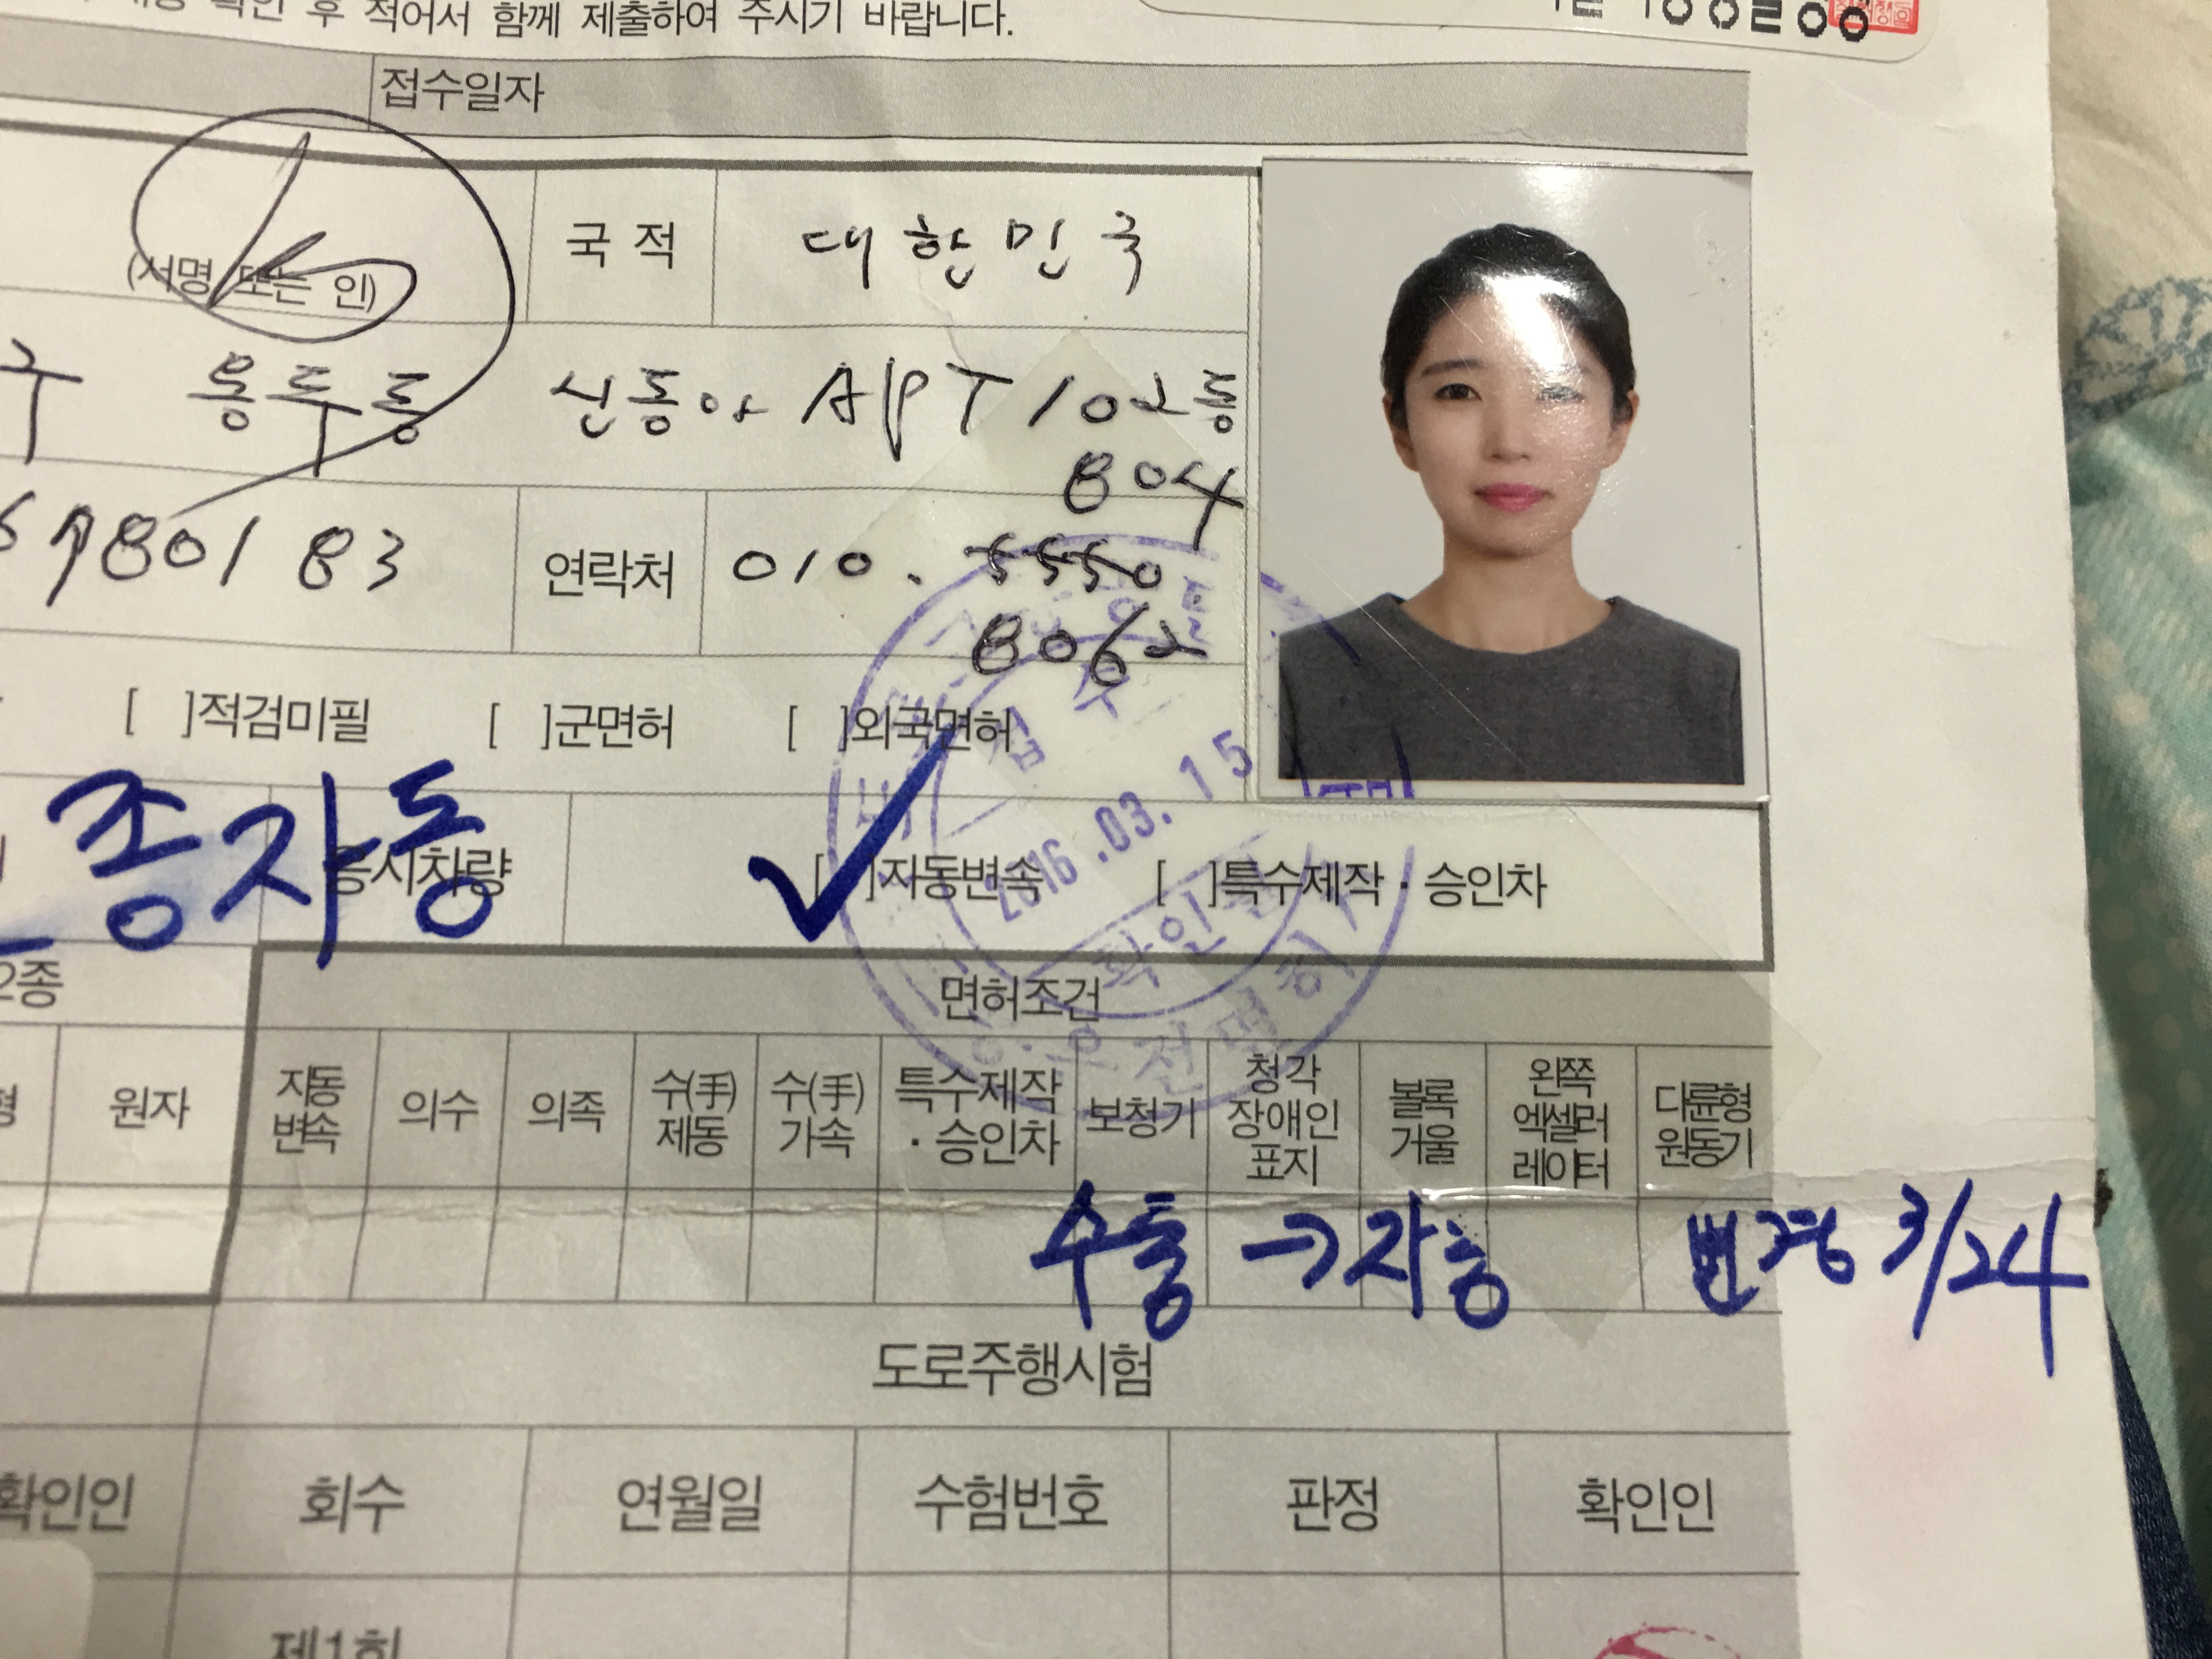 확인 후 적어서 함께 제출하여 주시기 바랍니다.
접수일자
(서명 또는 인)
국 적
대한민국
구 용두동 신동아 APT 102동
804
80183
연락처
010. 5550
8062
[ ]적검미필 [ ]군면허 [ ]외국면허
접수
2016.03.15
확인
운전면허
종자동
응시차량
[ ]자동변속 [ ]특수제작·승인차
2종
면허조건
원자
자동
변속
의수
의족
수(手)
제동
수(手)
가속
특수제작
·승인차
보청기
청각
장애인
표지
볼록
거울
왼쪽
엑셀러
레이터
다륜형
원동기
수동→자동 변경 3/24
도로주행시험
확인인
회수
연월일
수험번호
판정
확인인
제1회